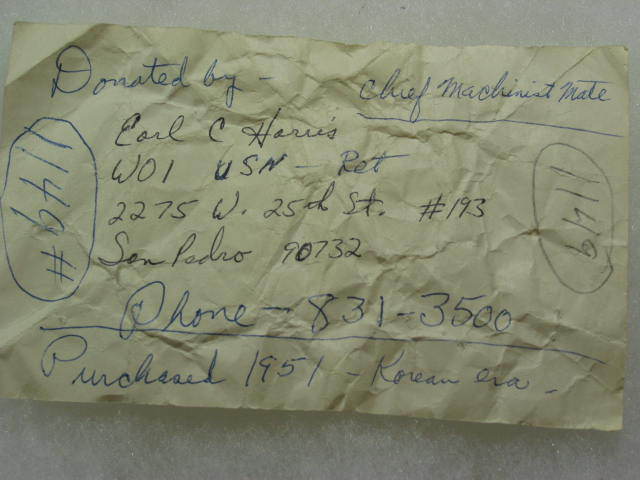 Donated by -
Chief Machinist Mate
Earl C Harris
WO1 USN - Ret
2275 W. 25th St. #193
San Pedro 90732
Phone - 831-3500
Purchased 1951 - Korean era -
#1149
1149